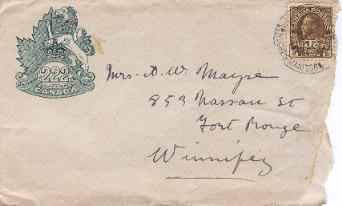 222
CANADA
Mrs. A. W. Mayse
859 Nassau St
Fort Rouge
Winnipeg